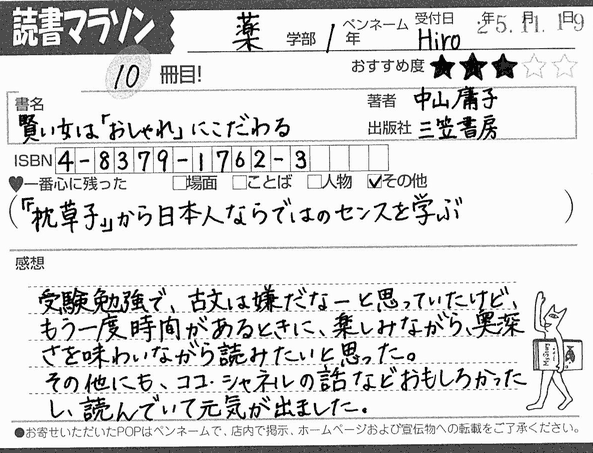 読書マラソン 薬 学部 1 年 ペンネーム Hiro 受付日 25年11月19日
10 冊目! おすすめ度 ★★★☆☆
書名 賢い女は「おしゃれ」にこだわる
著者 中山庸子
出版社 三笠書房
ISBN 4-8379-1762-3
♥一番心に残った □場面 □ことば □人物 ☑その他
(『枕草子』から日本人ならではのセンスを学ぶ)
感想
受験勉強で、古文は嫌だなーと思っていたけど、
もう一度時間があるときに、楽しみながら、奥深
さを味わいながら読みたいと思った。
その他にも、ココ・シャネルの話などおもしろかった
し、読んでいて元気が出ました。
●お寄せいただいたPOPはペンネームで、店内で掲示、ホームページおよび宣伝物への転載をご了承ください。